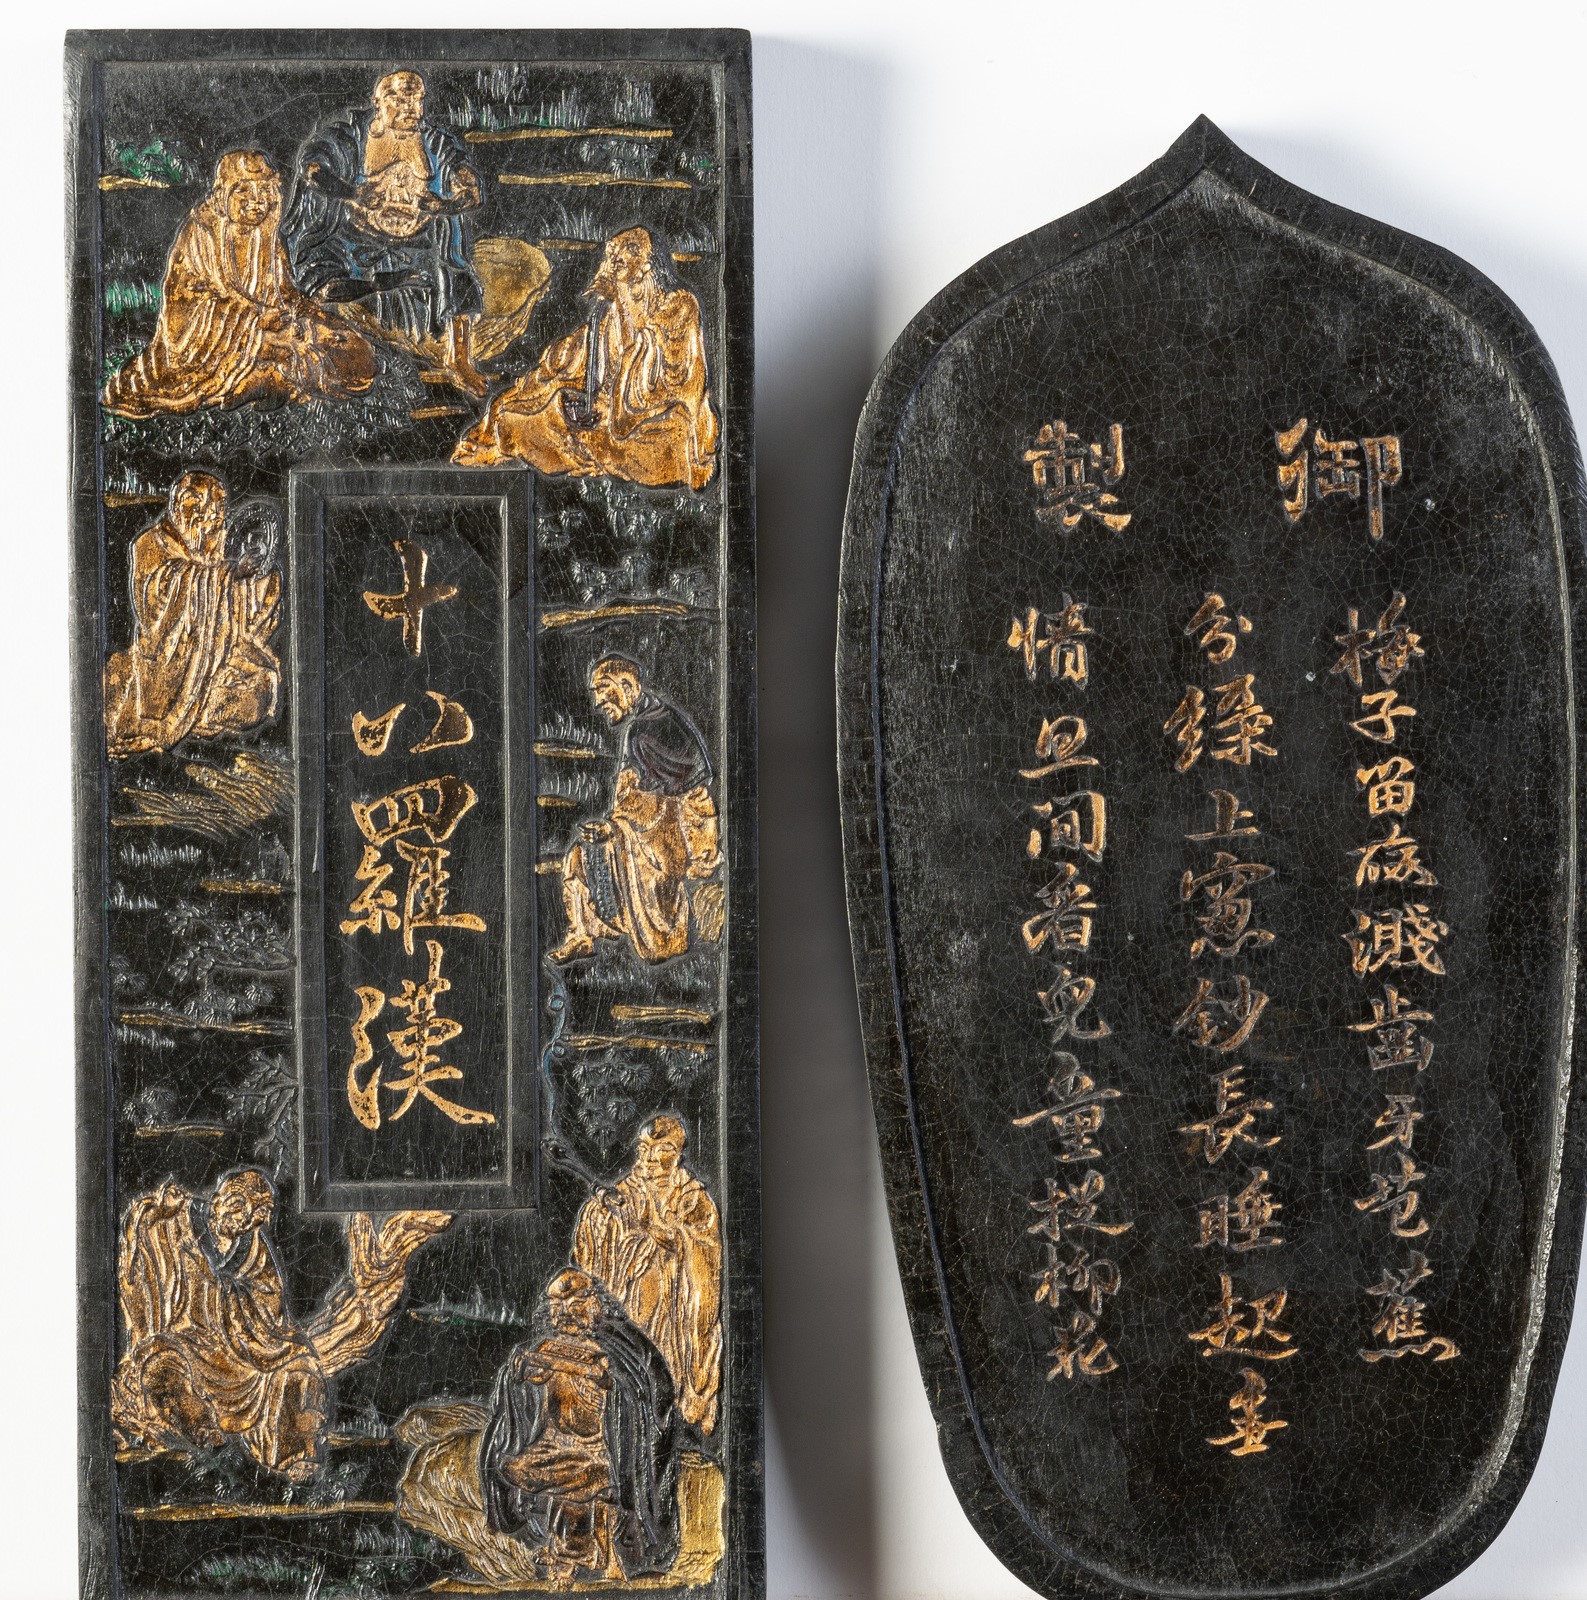 十八羅漢
御製
梅子留濺齒牙芭蕉
分綠上窓鈔長睡起
情旦間看兒童捉柳花